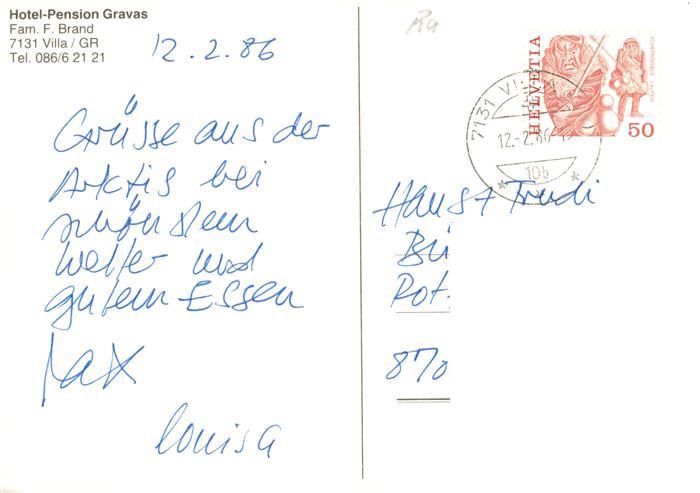 Hotel-Pension Gravas
Fam. F. Brand
7131 Villa / GR
Tel. 086/6 21 21
12.2.86
Grüsse aus der
Arktis bei
schönstem
Wetter und
gutem Essen
Max
Louisa
Ra
HELVETIA
ACHETRINGELE LAUPEN
50
7131 VI
12.-2.86-1
10b
Hans + Trudi
Bü
Rot.
870